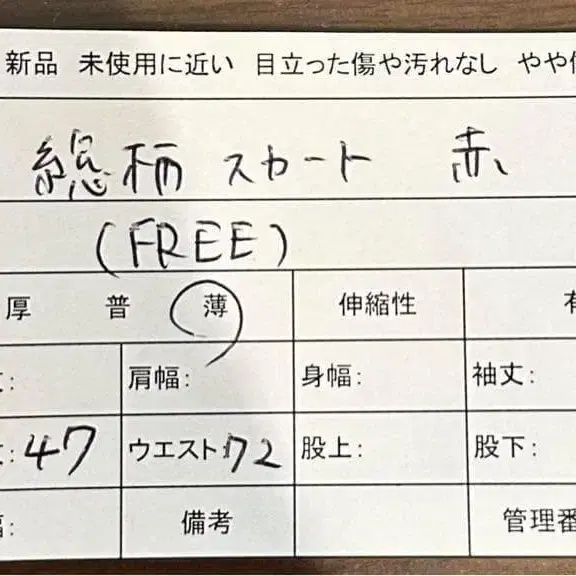 新品 未使用に近い 目立った傷や汚れなし やや
総柄 スカート 赤
(FREE)
厚 普 薄 伸縮性 有
: 肩幅: 身幅: 袖丈:
: 47 ウエスト: 72 股上: 股下:
: 備考 管理番